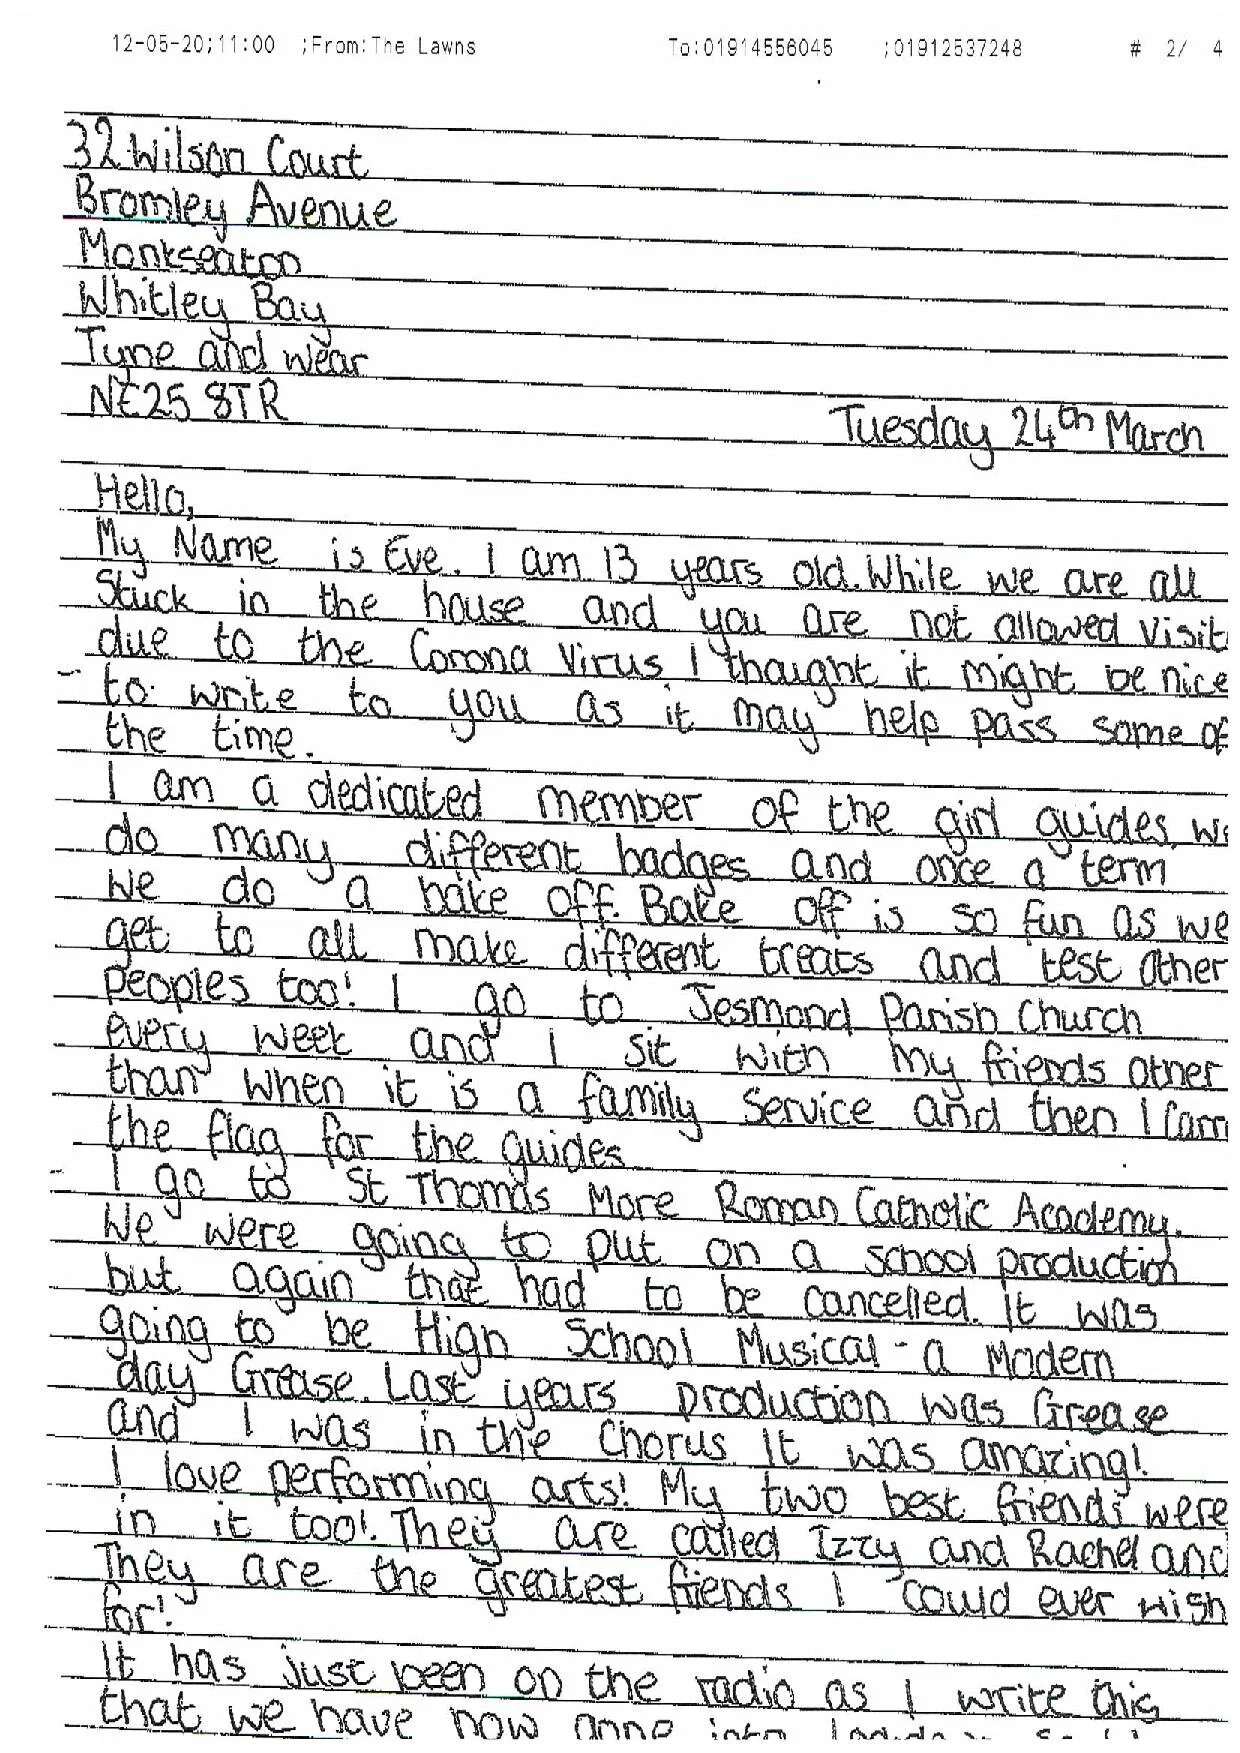 12-05-20;11:00 ;From:The Lawns To:01914556045 ;01912537248 # 2/ 4
32 Wilson Court
Bromley Avenue
Monkseaton
Whitley Bay
Tyne and wear
NE25 8TR
Tuesday 24th March
Hello,
My Name is Eve. I am 13 years old. While we are all
Stuck in the house and you are not allowed visit
due to the Corona Virus I thought it might be nice
to write to you as it may help pass some of
the time.
I am a dedicated member of the girl guides, we
do many different badges and once a term
we do a bake off. Bake off is so fun as we
get to all make different treats and test other
peoples too! I go to Jesmond Parish Church
every week and I sit with my friends other
than when it is a family service and then I carr
the flag for the guides
I go to St Thomas More Roman Catholic Academy.
We were going to put on a school production
but again that had to be cancelled. It was
going to be High School Musical - a Modern
day Grease. Last years production was Grease
and I was in the Chorus It was amazing!
I love performing arts! My two best friends were
in it too!. They are called Izzy and Rachel and
They are the greatest friends I could ever wish
for!
It has just been on the radio as I write this
that we have now gone into